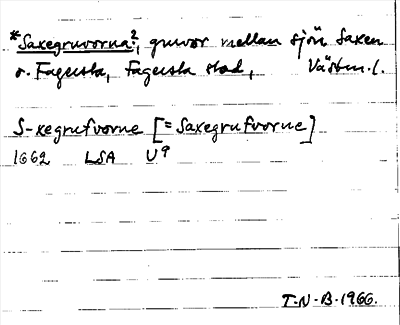 *Saxegruvorna?, gruvor mellan sjön Saxen
o. Fagersta, Fagersta stad, Västm. l.
S-xegrufvorne [= Saxegrufvorne]
1662 LSA U9
T-N-B-1966.